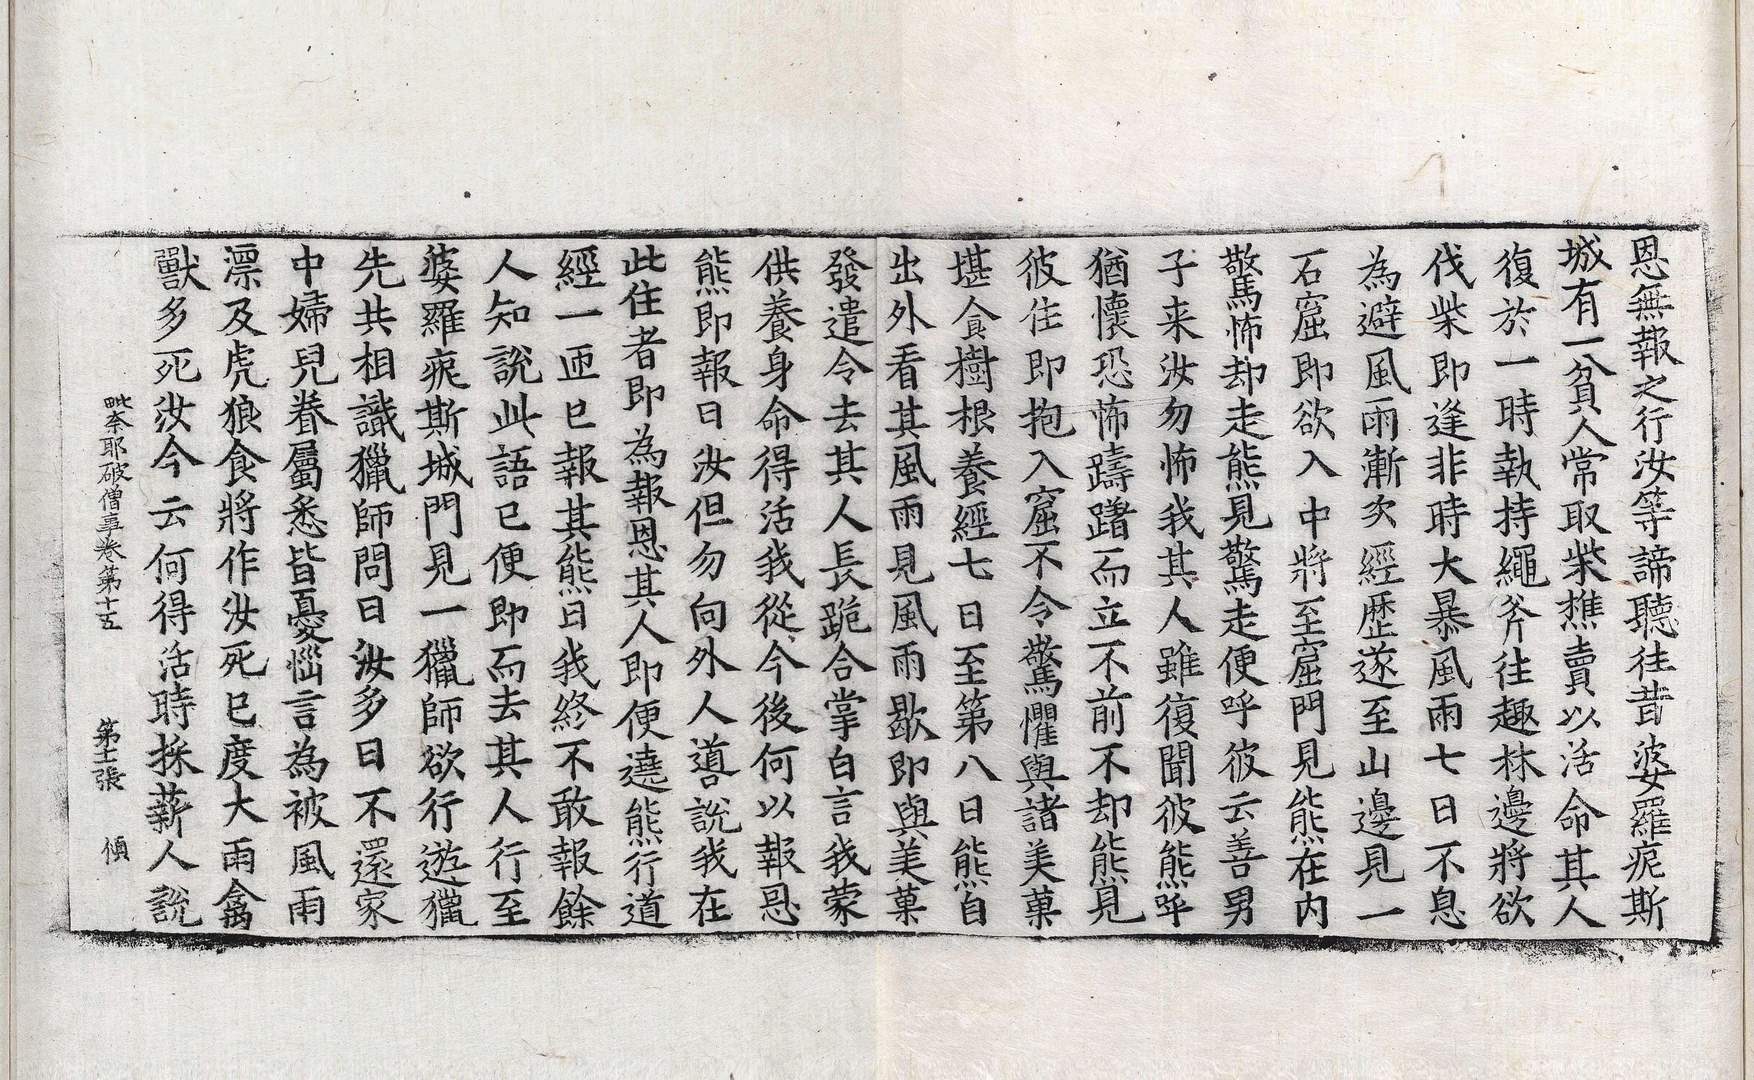 恩無報之行汝等諦聽往昔婆羅痆斯
城有一貧人常取柴樵賣以活命其人
復於一時執持繩斧往趣林邊將欲
伐柴即逢非時大暴風雨七日不息
為避風雨漸次經歷遂至山邊見一
石窟即欲入中將至窟門見熊在內
驚怖却走熊見驚走便呼彼云善男
子来汝勿怖我其人雖復聞彼熊呼
猶懷恐怖躊躇而立不前不却熊見
彼住即抱入窟不令驚懼與諸美菓
堪食樹根養經七日至第八日熊自
出外看其風雨見風雨歇即與美菓
發遣令去其人長跪合掌白言我蒙
供養身命得活我從今後何以報恩
熊即報曰汝但勿向外人導說我在
此住者即為報恩其人即便遶熊行道
經一帀已報其熊曰我終不敢報餘
人知說此語已便即而去其人行至
婆羅痆斯城門見一獵師欲行遊獵
先共相識獵師問曰汝多日不還家
中婦兒眷屬悉皆憂惱言為被風雨
漂及虎狼食將作汝死已度大雨禽
獸多死汝今云何得活時採薪人說
毗奈耶破僧事卷第十五 第十一張 傾